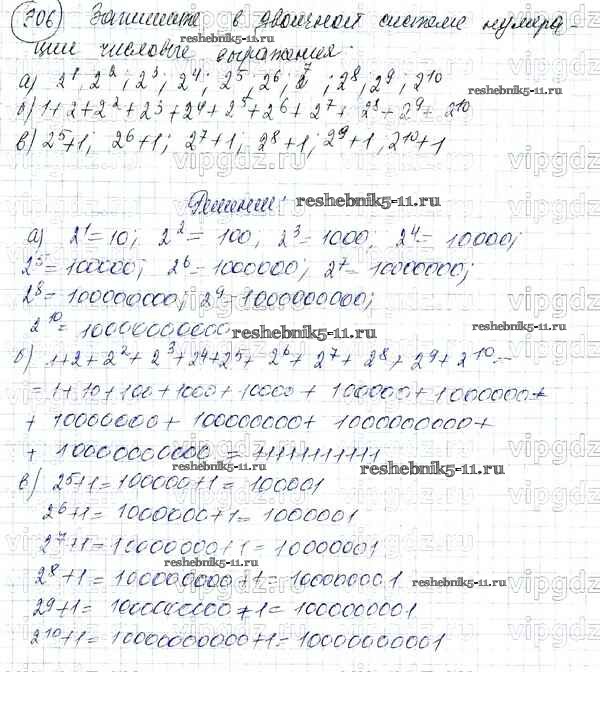 706 Запишите в двоичной системе нумера-
ции числовые выражения.
а) 2¹, 2²; 2³; 2⁴; 2⁵; 2⁶; 2⁷; 2⁸, 2⁹, 2¹⁰
б) 1+2+2²+2³+2⁴+2⁵+2⁶+2⁷+2⁸+2⁹+2¹⁰
в) 2⁵+1; 2⁶+1; 2⁷+1; 2⁸+1; 2⁹+1, 2¹⁰+1
Решение: reshebnik5-11.ru
а) 2¹=10; 2²=100, 2³=1000, 2⁴=10000;
2⁵=100000; 2⁶=1000000; 2⁷=10000000;
2⁸=100000000; 2⁹=1000000000;
2¹⁰=10000000000 reshebnik5-11.ru
б) 1+2+2²+2³+2⁴+2⁵+2⁶+2⁷+2⁸+2⁹+2¹⁰=
=1+10+100+1000+10000+100000+1000000+
+10000000+100000000+1000000000+
+10000000000=11111111111
reshebnik5-11.ru reshebnik5-11.ru
в) 2⁵+1=100000+1=100001
2⁶+1=1000000+1=1000001
2⁷+1=10000000+1=10000001
reshebnik5-11.ru reshebnik5-11.ru
2⁸+1=100000000+1=100000001
2⁹+1=1000000000+1=1000000001
reshebnik5-11.ru
2¹⁰+1=10000000000+1=10000000001
vipgdz.ru